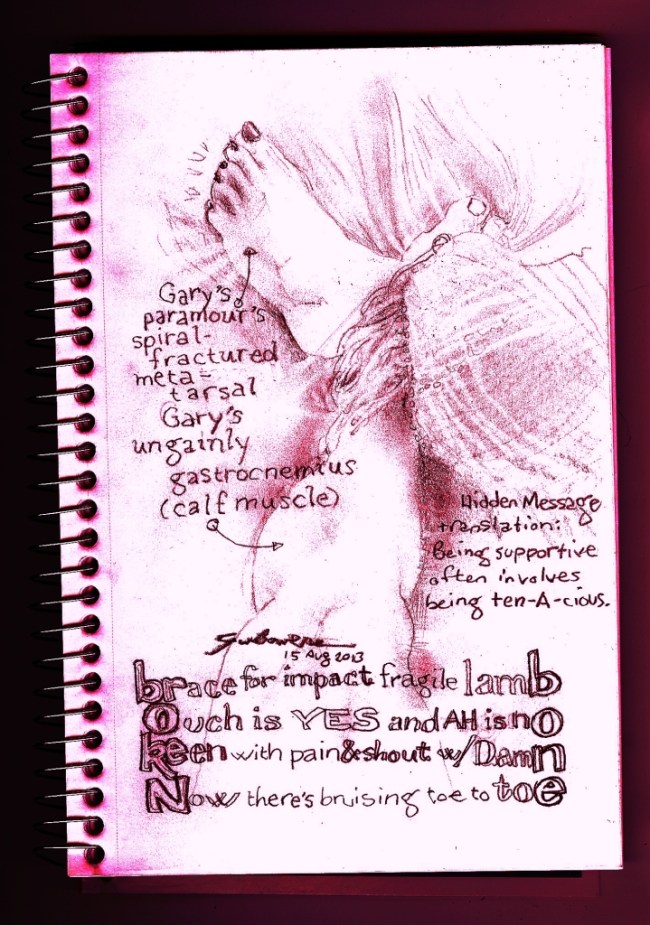 Gary's
paramour's
spiral-
fractured
meta-
tarsal
Gary's
ungainly
gastrocnemius
(calf muscle)
Hidden Message
translation:
Being supportive
often involves
being ten-A-cious.
15 Aug 2013
brace for impact fragile lamb
Ouch is YES and AH is no
keen with pain & shout w/ Damn
Now there's bruising toe to toe